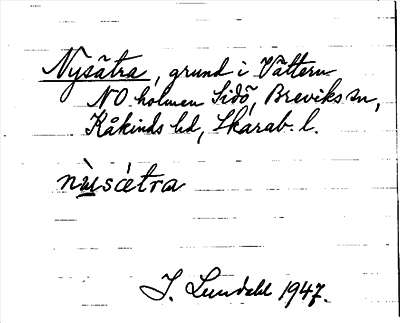 Nysätra, grund i Vättern
NO holmen Sidö, Breviks sn,
Kåkinds hd, Skarab. l.
nỳsætra
I. Lundahl 1947.